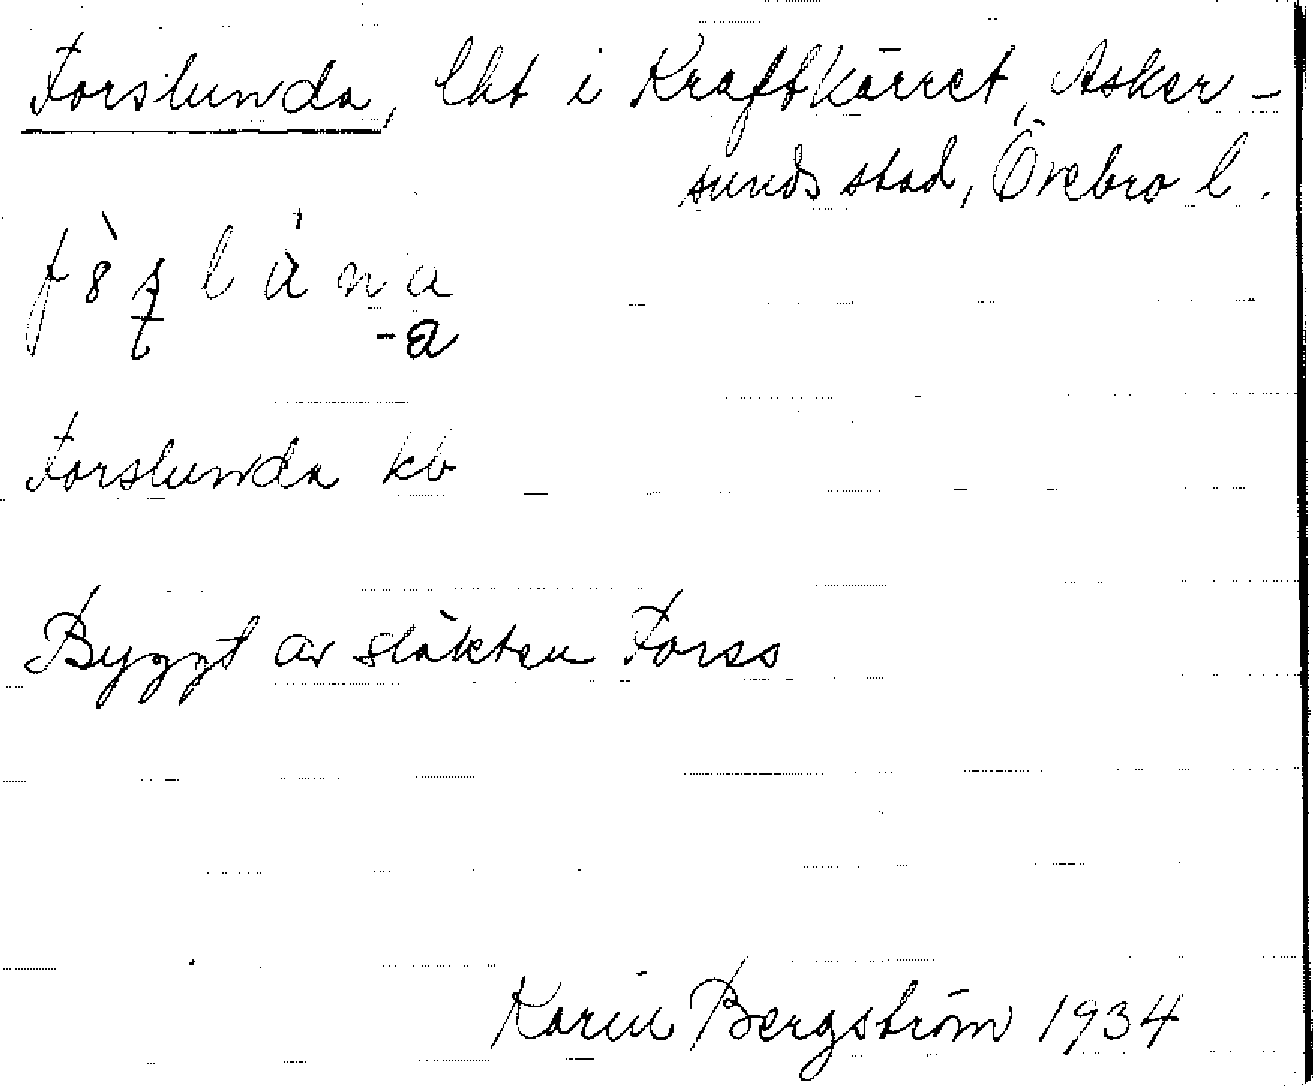 Forslunda, lht i Kraftkärret, Asker-
sunds stad, Örebro l.
Forslunda kb
Byggt av släkten Forss
Karin Bergström 1934